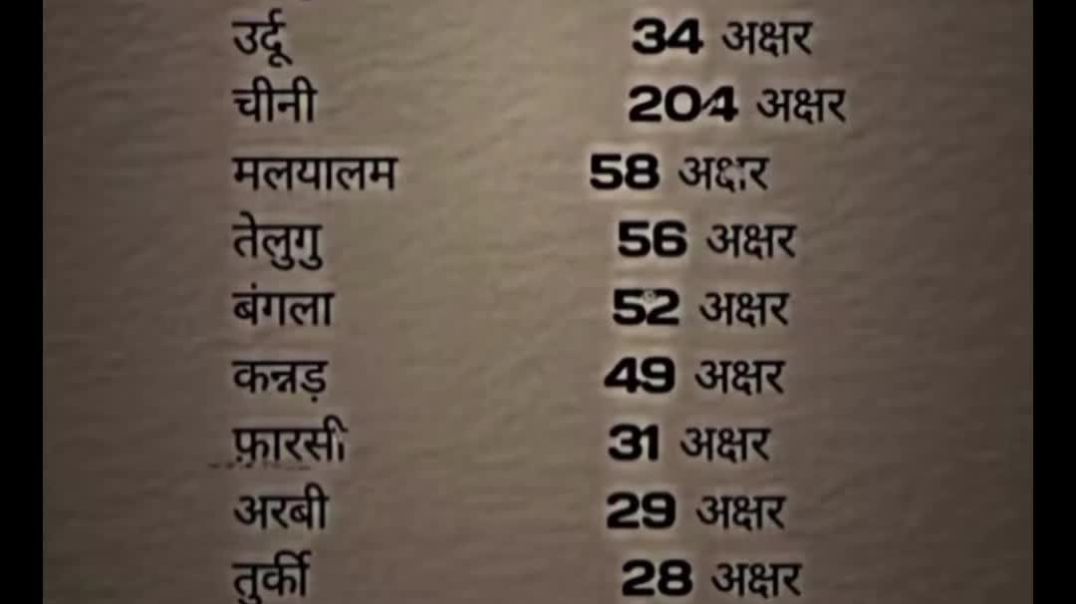 उर्दू 34 अक्षर
चीनी 204 अक्षर
मलयालम 58 अक्षर
तेलुगु 56 अक्षर
बंगला 52 अक्षर
कन्नड़ 49 अक्षर
फ़ारसी 31 अक्षर
अरबी 29 अक्षर
तुर्की 28 अक्षर